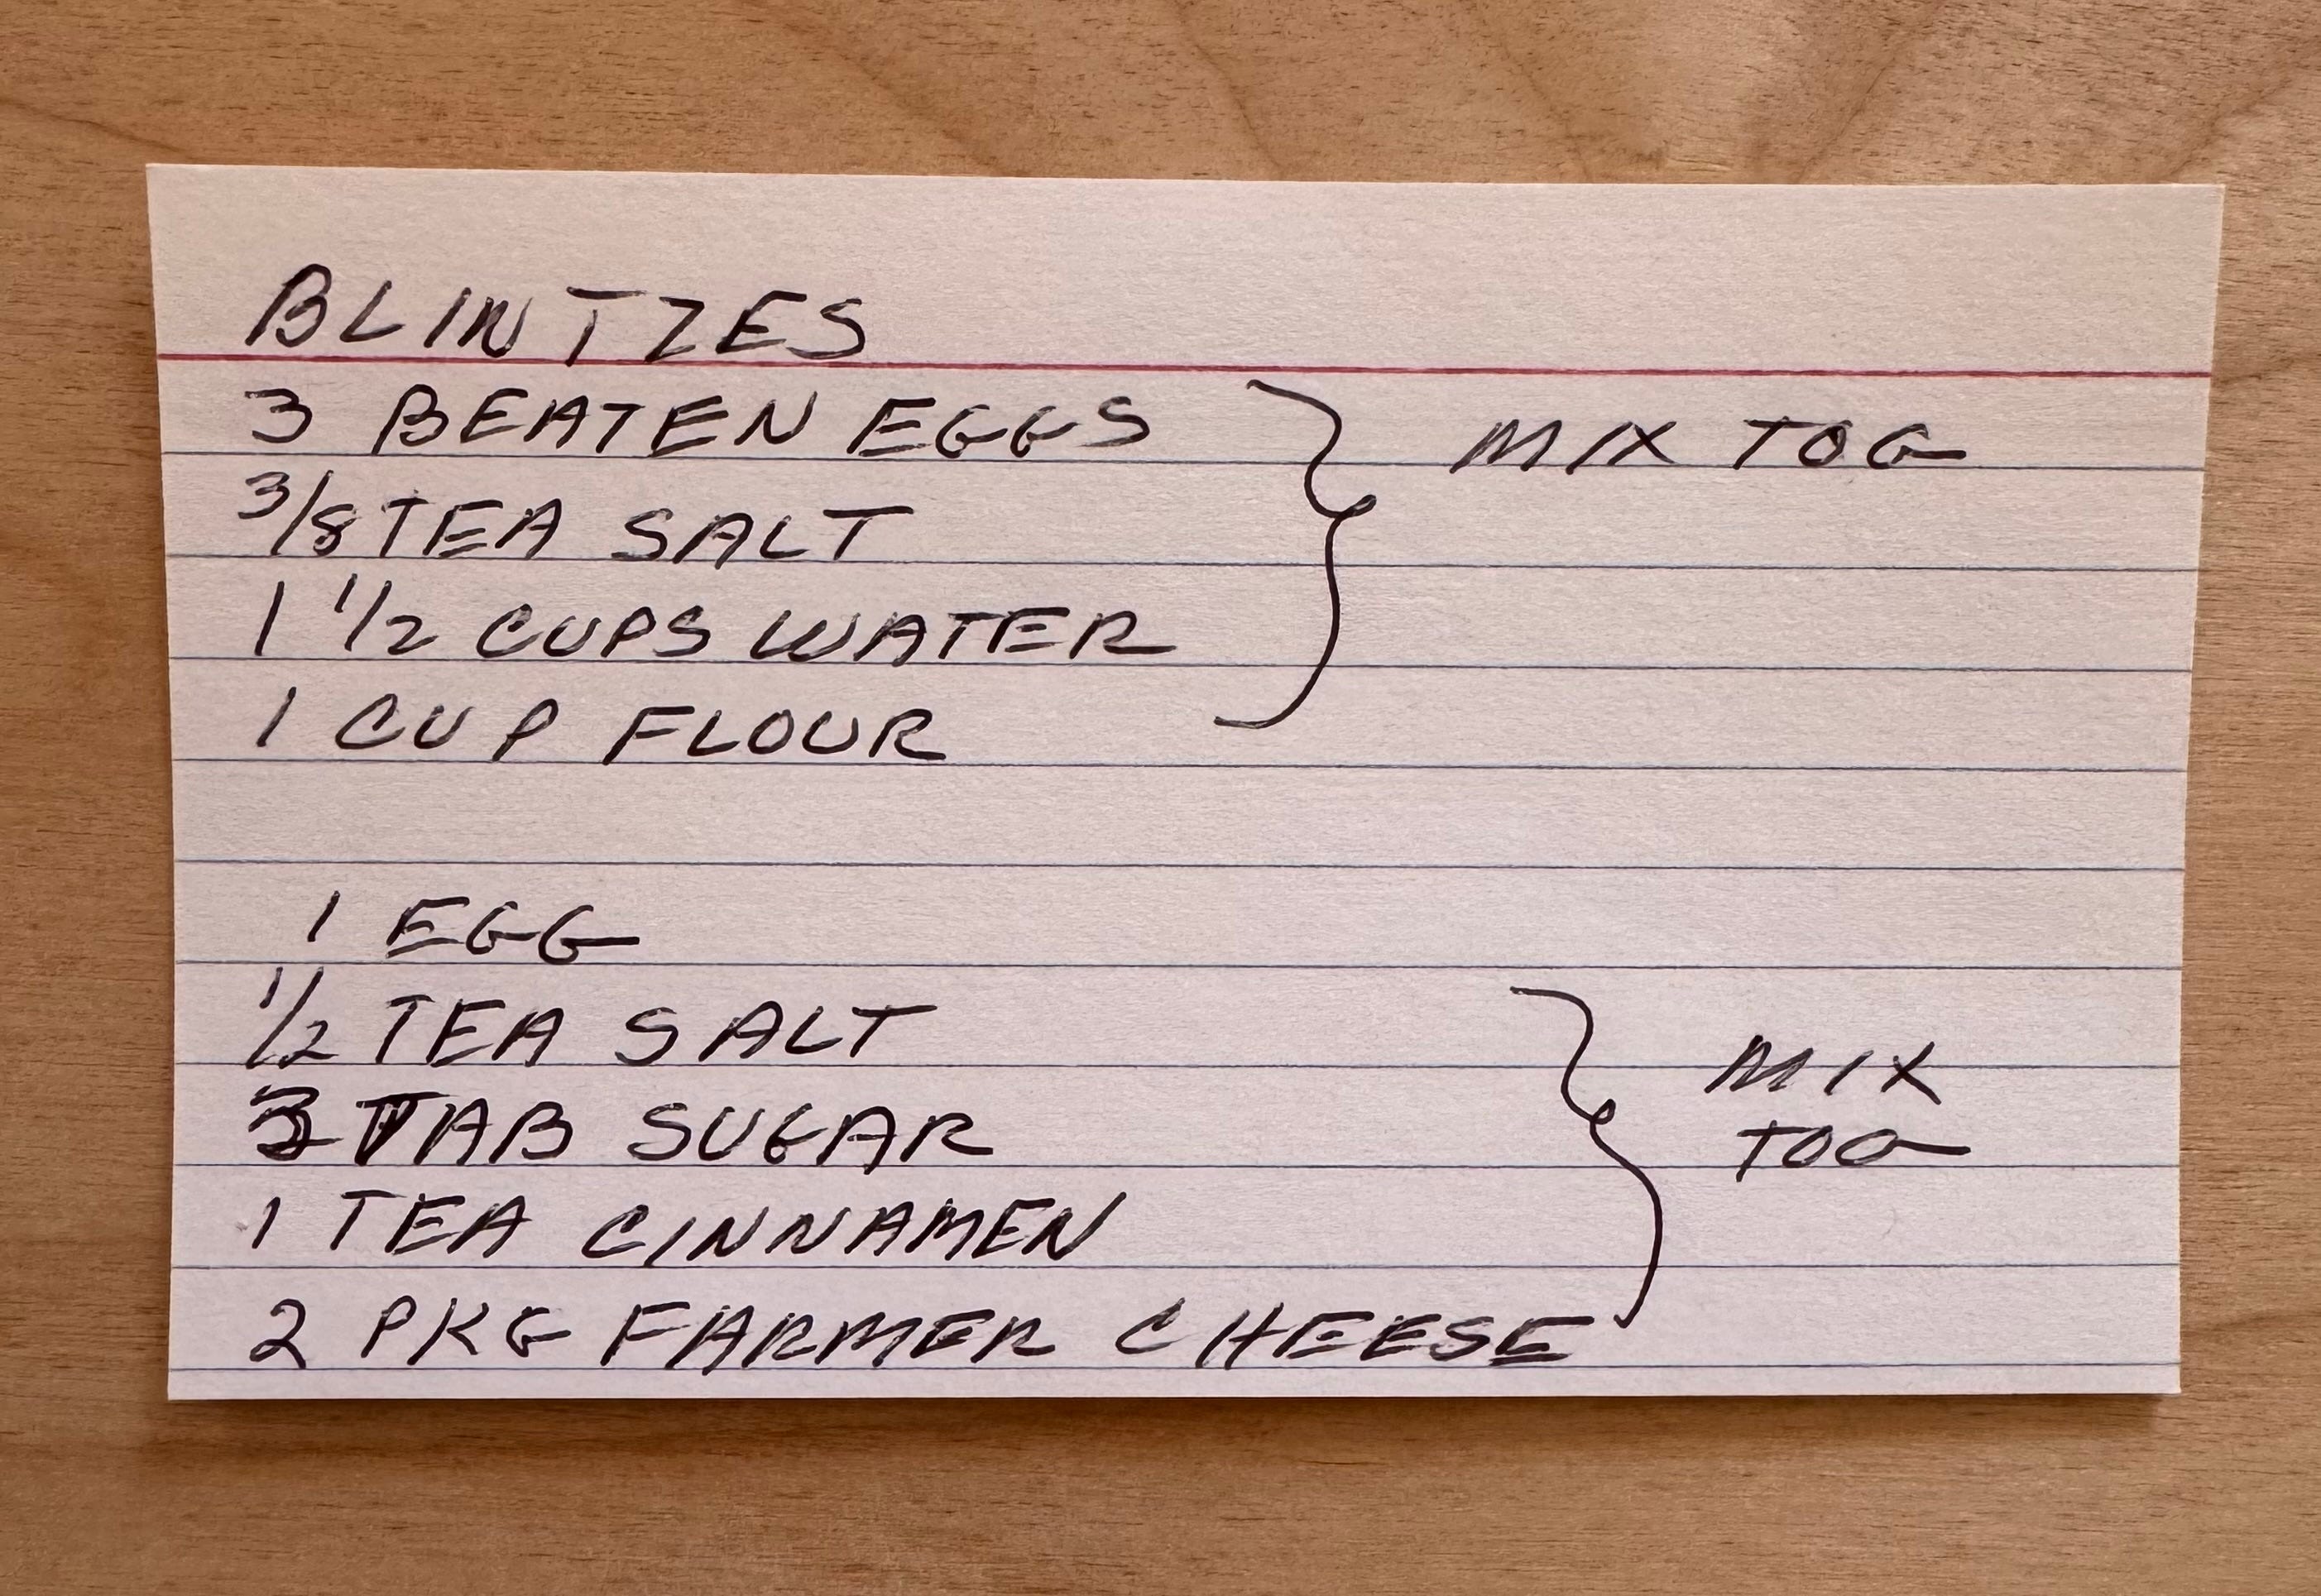 BLINTZES
3 BEATEN EGGS
MIX TOG
3/8 TEA SALT
1 1/2 CUPS WATER
1 CUP FLOUR
1 EGG
1/2 TEA SALT
MIX
TAB SUGAR
TOG
1 TEA CINNAMEN
2 PKG FARMER CHEESE